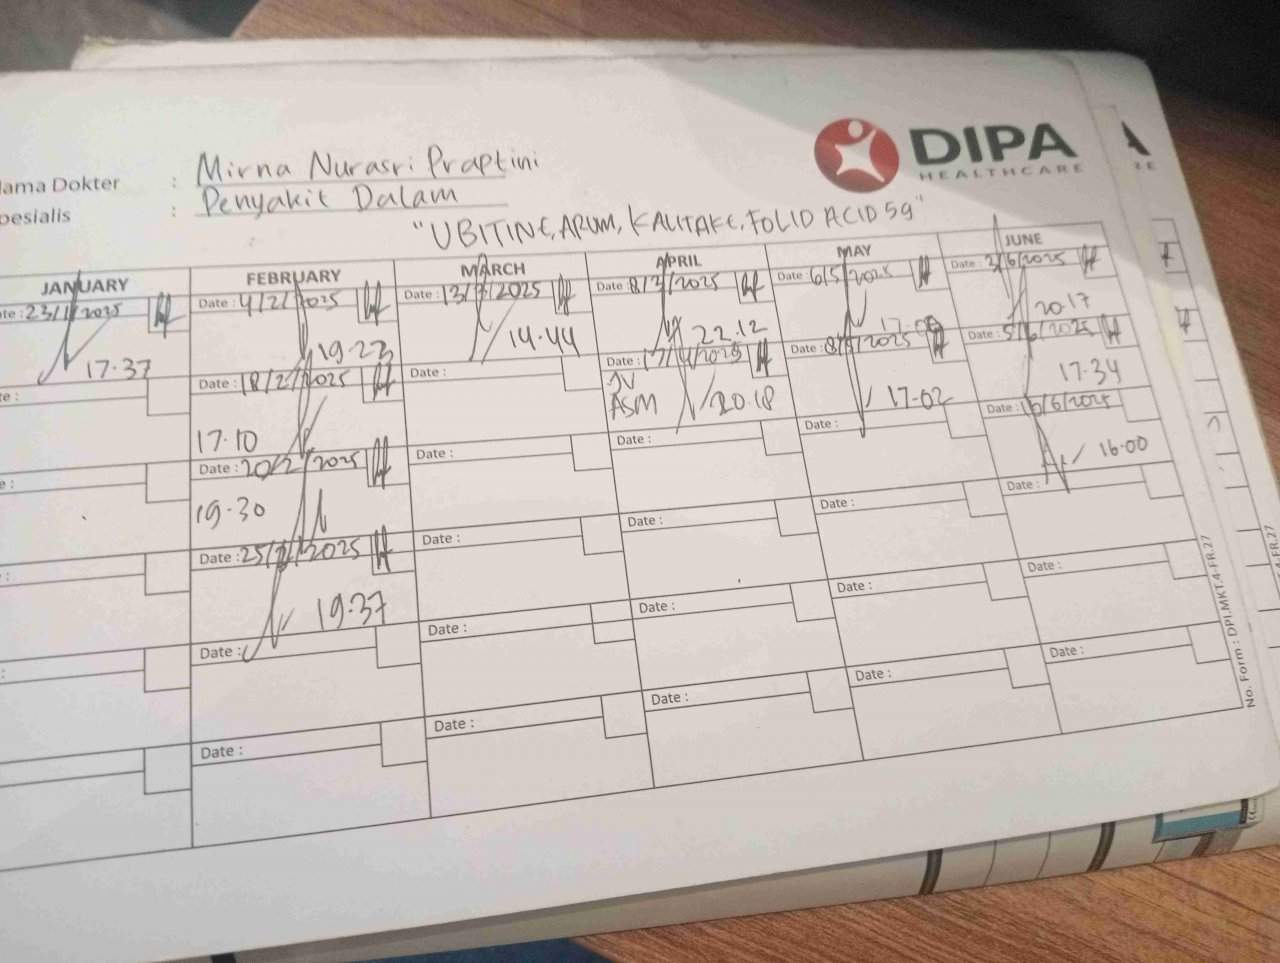 DIPA
HEALTHCARE
ama Dokter : Mirna Nurasri Praptini
pesialis : Penyakit Dalam
"UBITINE, ARUM, KALITAKE, FOLID ACID 5g"
JANUARY FEBRUARY MARCH APRIL MAY JUNE
te: 23/1/2025 Date: 4/2/2025 Date: 13/3/2025 Date: 8/3/2025 Date: 6/5/2025 Date: 3/6/2025
17.37 19.23 14.44 22.12 20.17
te: Date: 18/2/2025 Date: Date: 17/4/2025 Date: 8/5/2025 Date: 5/6/2025
17.10 JV ASM 20.18 17-02 17.34
e: Date: 20/2/2025 Date: Date: Date: Date: 16/6/2025
19.30 16.00
: Date: 25/2/2025 Date: Date: Date: Date:
19.37
: Date: Date: Date: Date: Date:
Date: Date: Date: Date: Date:
No. Form : DPI.MKT.4-FR.27